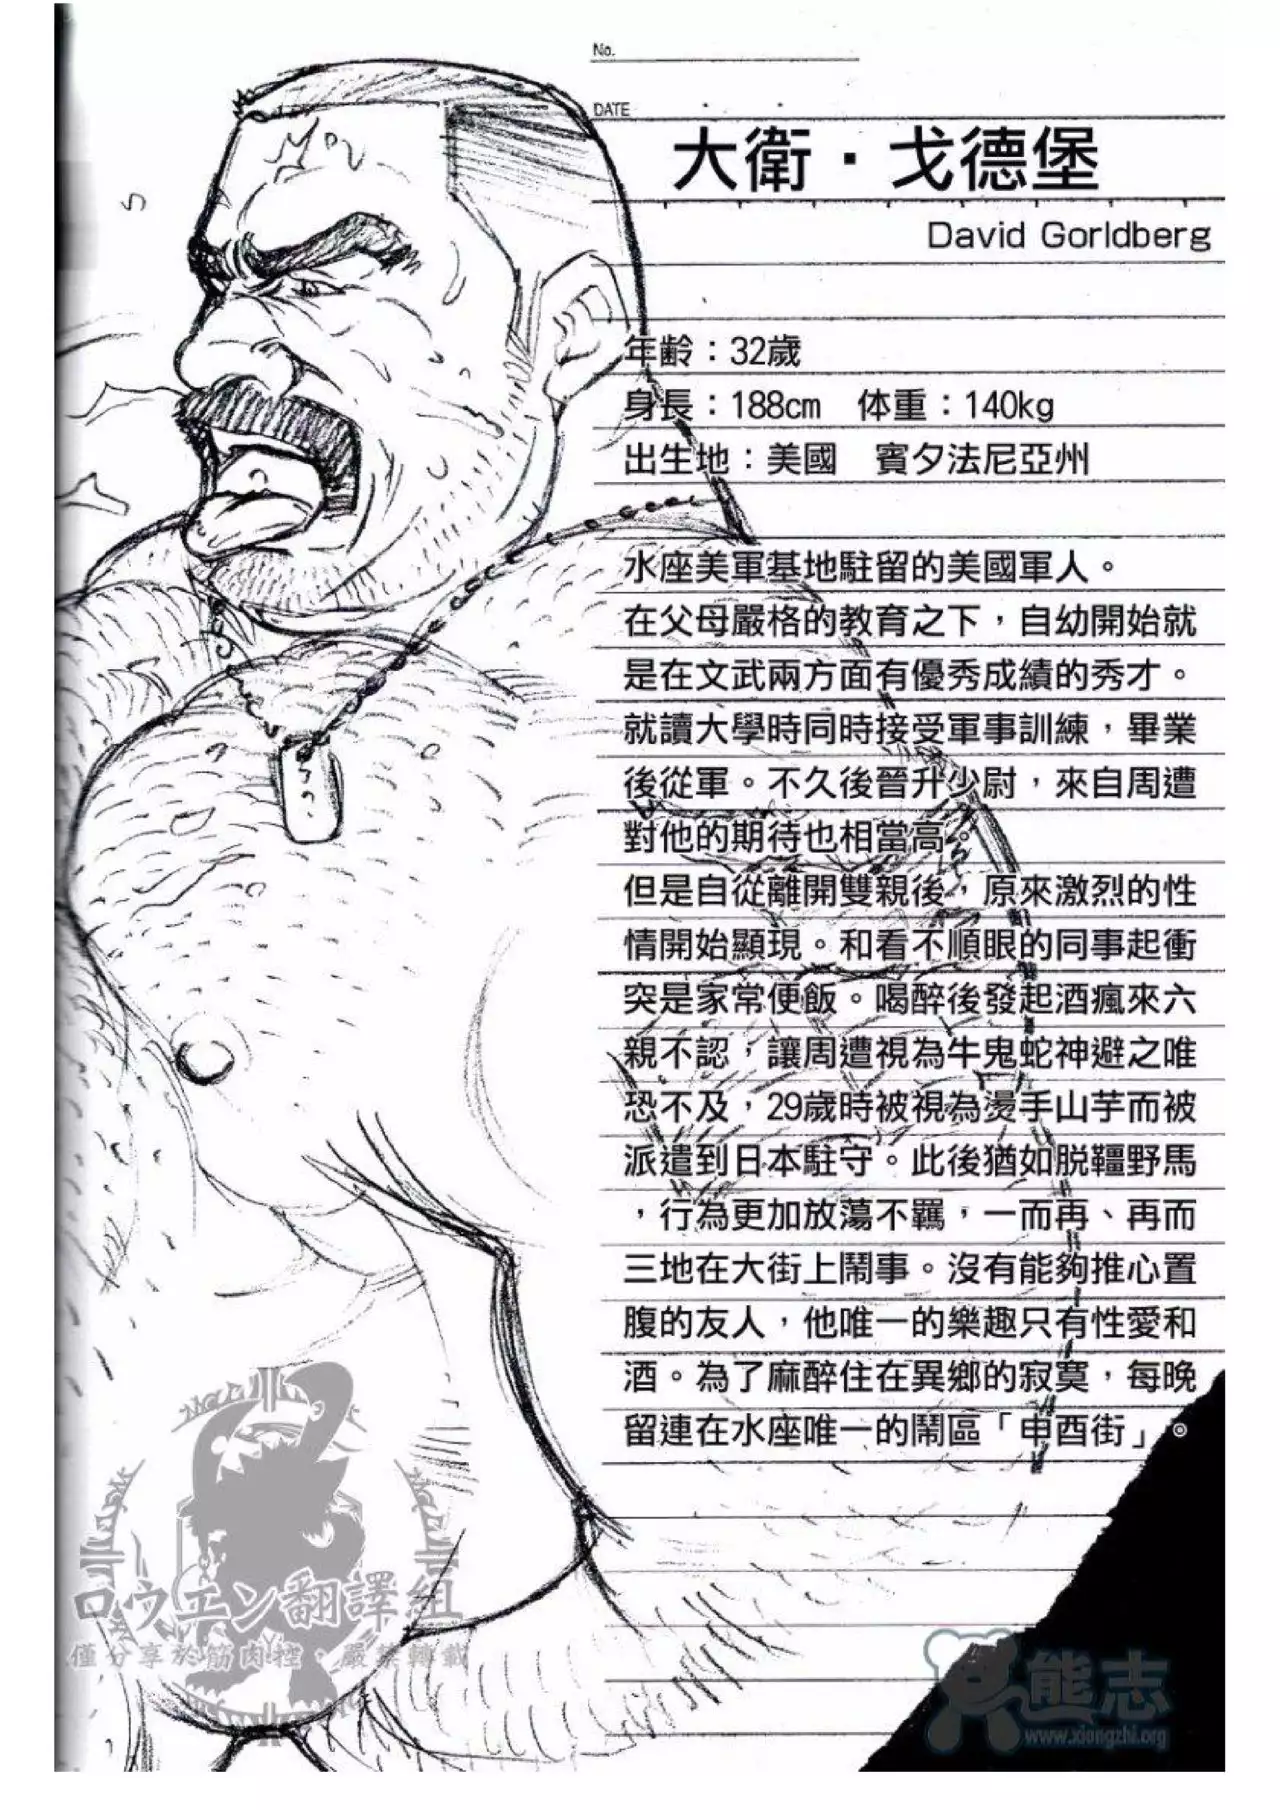 No.
DATE
大衛・戈德堡
David Gorldberg
年齡：32歲
身長：188cm　体重：140kg
出生地：美國　賓夕法尼亞州
水座美軍基地駐留的美國軍人。
在父母嚴格的教育之下，自幼開始就
是在文武兩方面有優秀成績的秀才。
就讀大學時同時接受軍事訓練，畢業
後從軍。不久後晉升少尉，來自周遭
對他的期待也相當高。
但是自從離開雙親後，原來激烈的性
情開始顯現。和看不順眼的同事起衝
突是家常便飯。喝醉後發起酒瘋來六
親不認，讓周遭視為牛鬼蛇神避之唯
恐不及，29歲時被視為燙手山芋而被
派遣到日本駐守。此後猶如脱韁野馬
，行為更加放蕩不羈，一而再、再而
三地在大街上鬧事。沒有能夠推心置
腹的友人，他唯一的樂趣只有性愛和
酒。為了麻醉住在異鄉的寂寞，每晚
留連在水座唯一的鬧區「申酉街」。
ロウエン翻譯組
僅分享於筋肉控，嚴禁轉載
熊志
www.xiongzhi.org